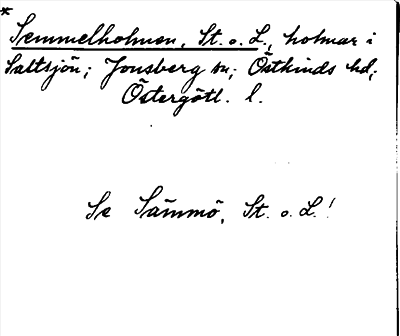 *
Semmelholmen, St. o. L., holmar i
Saltsjön; Jonsberg sn; Östkinds hd;
Östergötl. l.
Se Sämmö, St. o. L.!